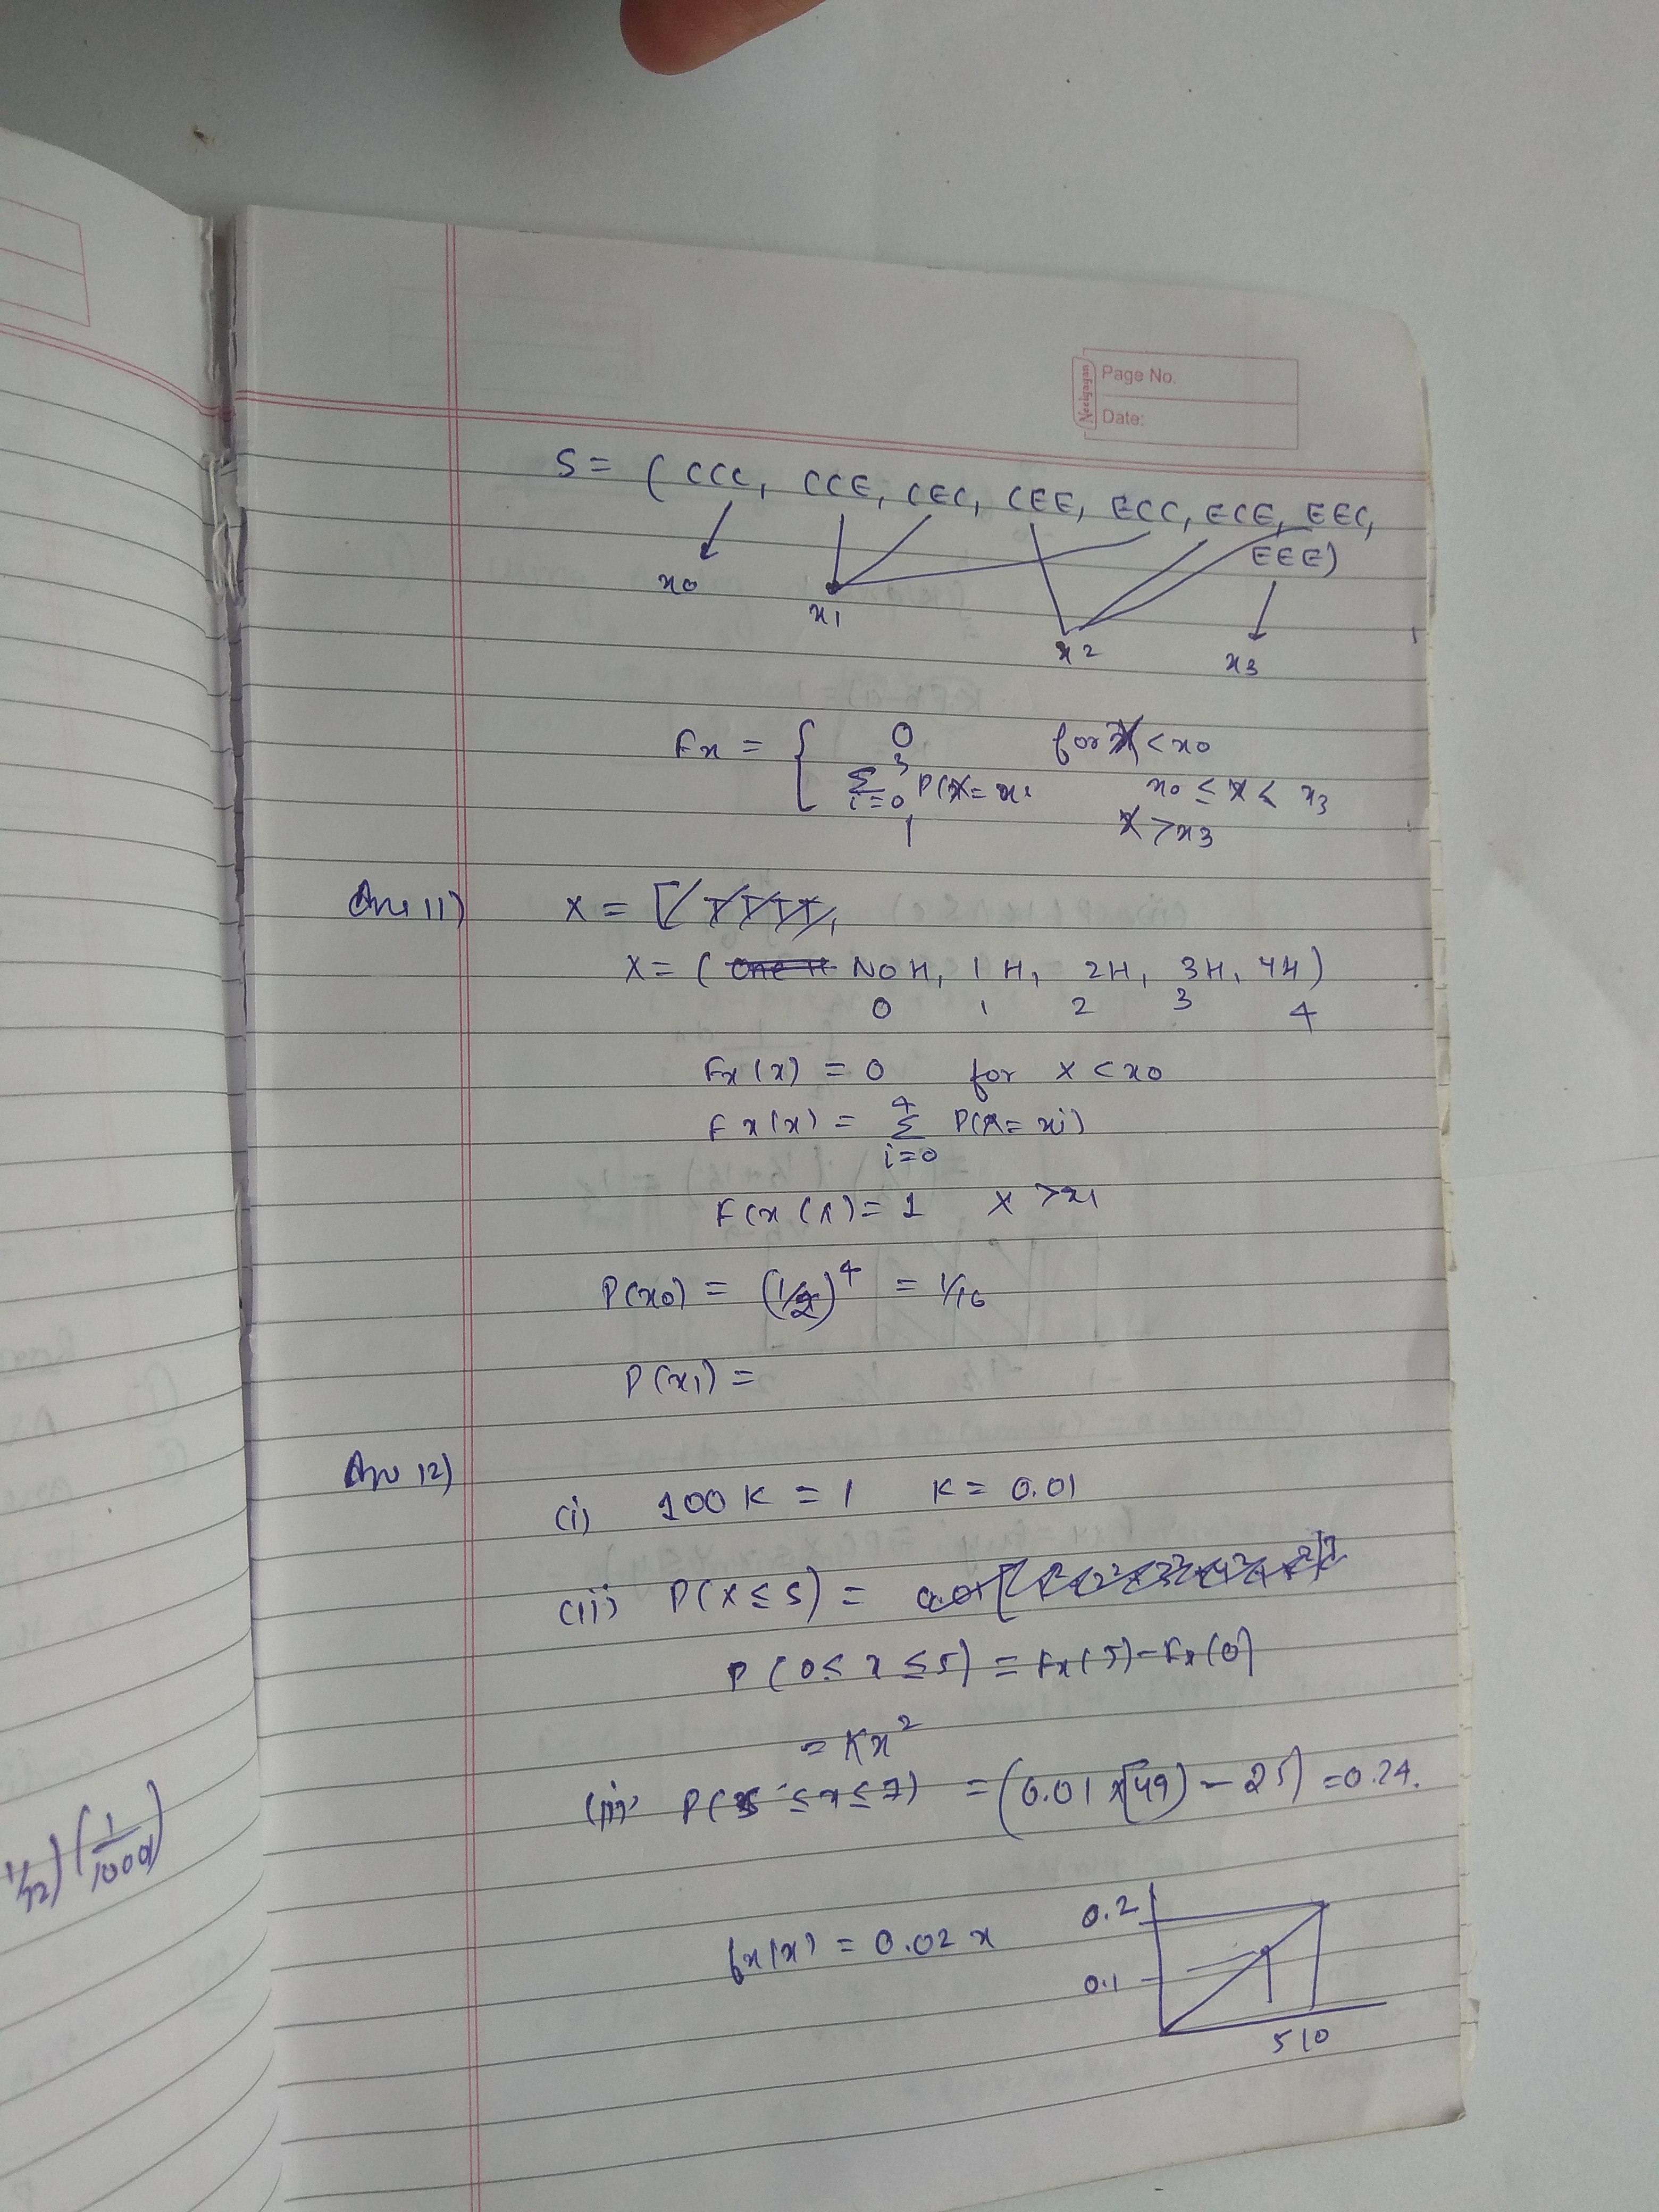 Neelgagan
Page No.
Date:
S = ( CCC, CCE, CEC, CEE, ECC, ECE, EEC,
EEE)
x0 x1 x2 x3
Fx = { 0 for X < x0
3
Σ P(X = xi x0 ≤ X < x3
i=0
1 X > x3
Ans 11) X = [ TTTT,
X = ( One H NO H, 1 H, 2H, 3H, 4H )
0 1 2 3 4
Fx(x) = 0 for x < x0
4
Fx(x) = Σ P(X = xi)
i=0
F(x(x) = 1 x > x1
P(x0) = (1/2)^4 = 1/16
P(x1) =
Ans 12)
(i) 100 K = 1 K = 0.01
(ii) P(X ≤ 5) =
P ( 0 ≤ x ≤ 5) = Fx(5) - Fx(0)
= Kx²
(iii) P(5 ≤ x ≤ 7) = (0.01 x[49) - 25) = 0.24.
1/72) (1/1000)
fx(x) = 0.02 x
0.2
0.1
5 10